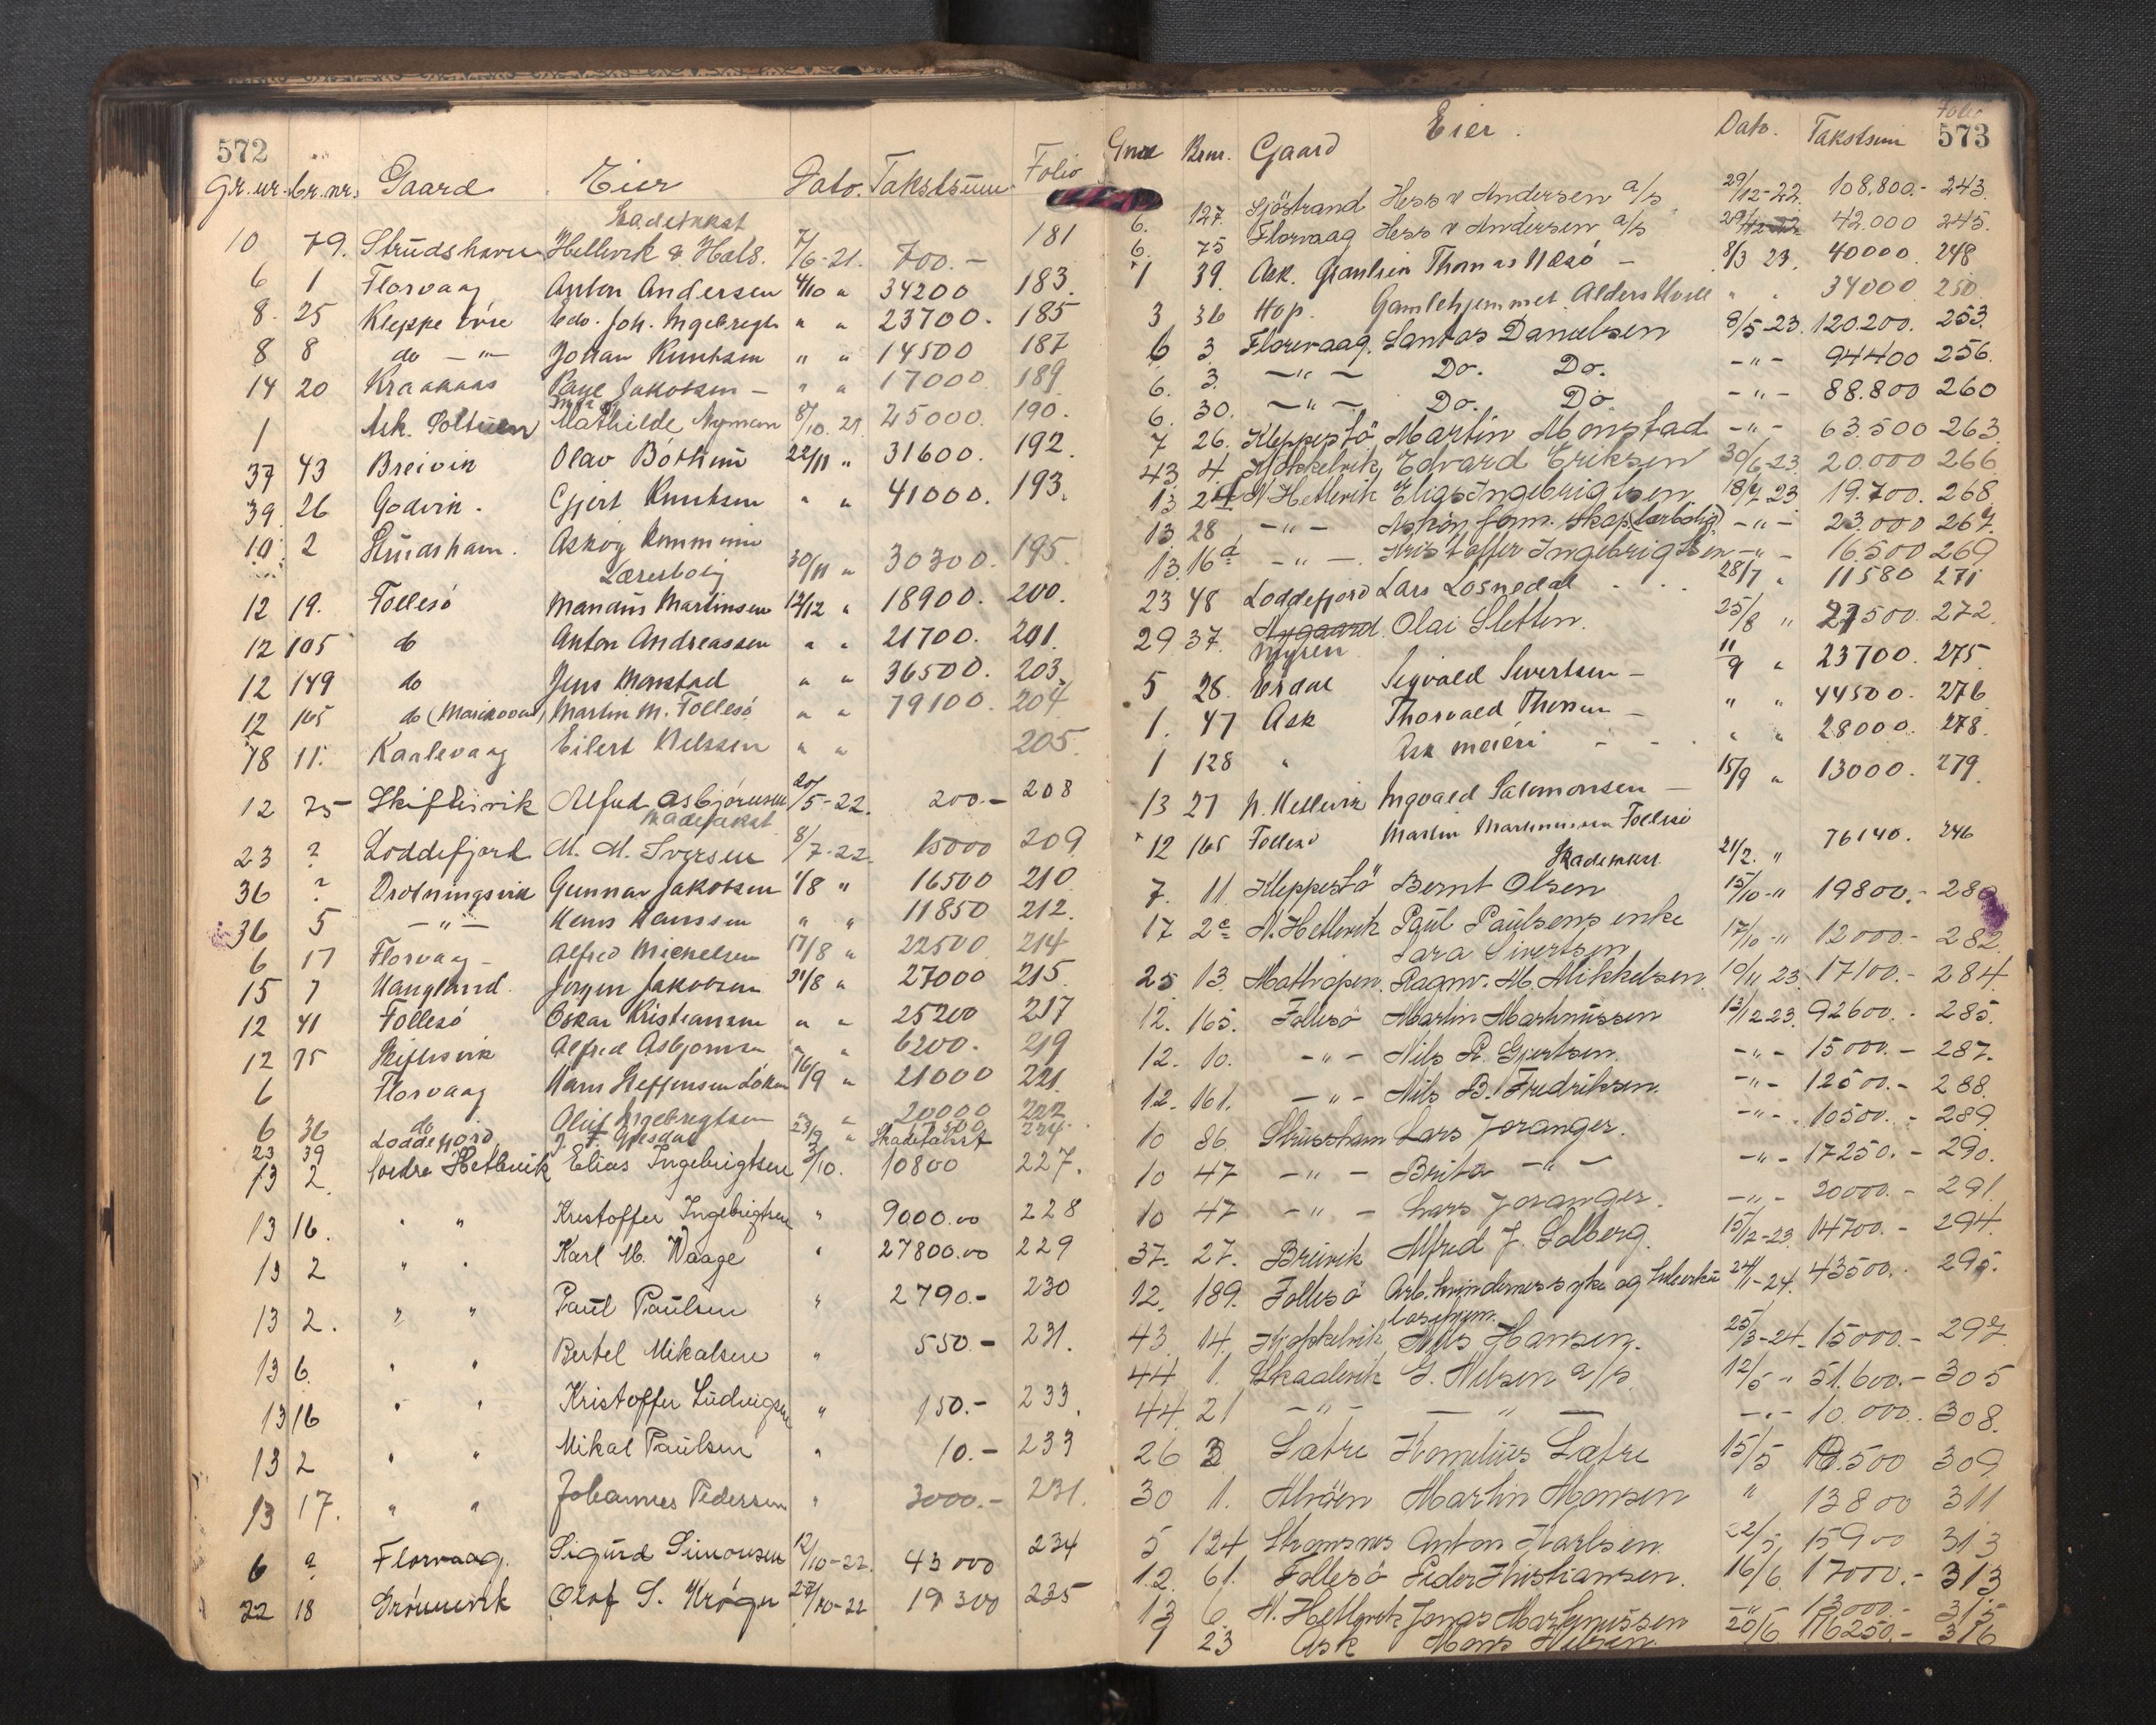 572
Gr.nr. br.nr. Gaard Eier Dato. Takstsum Folio
Skadetakst
10 79. Strudshavn Hellevik & Hals. 7/6-21. 700.- 181
6 1 Florvaag Anton Andersen 4/10 " 34200 183.
8. 25 Kleppe övre Edv. Joh. Ingebregts " " 23700. 185
8 8 do -"- Johan Knutsen " " 14500 187
14 20 Kraakaas Page Jakobsen - " " 17000. 189
1 Ask. Mathilde Nyman 8/10. 21 25000. 190.
37 43 Breivik Olav Böthun 22/11 " 31600. 192.
39. 26 Godvik. Gjert Knutsen " " 41000. 193.
10. 2 Strudsham. Askøy Kommune
Lærerbolig 30/11 " 30300. 195.
12 19. Follesö Mandus Martinsen 12/12 " 18900. 200.
12 105 do Anton Andreassen " " 21700. 201.
12 149 do Jens Monstad " " 36500. 203.
12 165 do Martin M. Follesö " " 79100. 204
78 11. Kaalevaag Eilert Nilssen " " 205.
12 75 Skiftesvik Alfred Asbjørnsen 20/5-22. 200.- 208
Skadetakst
23 ? Loddefjord M. M. Iversen 8/7-22. 15000 209.
36 ? Drotningsvik Gunnar Jakobsen 1/8 " 16500 210.
36 5 -"- Hans Hanssen " " 11850 212.
6 17 Florvaag - Alfred Mickelsen 17/8 " 22500 214
15 7 Haugland. Jørgen Jakobsen 31/8 " 27000 215.
12 41 Follesö Oskar Kristiansen " " 25200 217
12 75 Skiftesvik Alfred Asbjørnsen " " 6200. 219
6 Florvaag Hans Steffensen 16/9 " 21000 221.
6 36 do Oluf Ingebregtsen " 20000 222
23 39 Loddefjord 23/9 " Skadetakst 224
13 2. Søedre Hetlevik Elias Ingebrigtsen 3/10. 10800 227.
13 16. " " Kristoffer Ingebrigtsen " 9000.00 228
13 2 " " Karl M. Waage " 27800.00 229
13 2. " " Paul Paulsen " 2790.- 230
13 6. " " Bertel Mikalsen " 550.- 231.
13 16 " " Kristoffer Ludvigsen " 150.- 233.
13 2 " " Mikal Paulsen " 10.- 233
13 17. " " Johannes Pedersen " 3000.- 231.
6 ? Florvaag. Sigurd Simonsen 12/10-22. 43000 234
22 18 Grönnevik Olaf S. Kröger 27/10-22 19300 235
Folio
573
Gnr Brnr. Gaard Eier. Dato. Takstsum
6. 127. Sjöstrand Hess & Andersen a/s 29/12-22. 108.800.- 243.
6. 75 Florvaag Hess & Andersen a/s 29/12-22 42.000 245.
1 39. Ask. Thomas Næsö - 8/3 23. 40000. 248
3 36 Hop. Gamlehjemmet Alders Hvile " " 34000 250
6 3. Florevaag. Santos Danielsen 8/5-23. 120.200. 253.
6. 3. -"- Do. Do. -"- 94400 256.
6. 30. -"- Do. Do. -"- 88.800 260
7 26. Kleppestö Martin Monstad -"- 63.500 263
43. 4. Kjökkelvik Edvard Eriksen 30/6-23. 20.000 266
13 2 N. Hetlevik Elias Ingebrigtsen. 18/7 23 19.700. 268.
13 28 -"- Askøy -"- 23.000 267.
13. 16a -"- Kristoffer Ingebrigtsen -"- 16.500 269
23 48 Loddefjord Lars Losnedal - 28/7 " 11580 271
29 37. Nygaard Myren Olai Sletten. 25/8 " 27500. 272.
5 28. Erdal Sigvald Sivertsen - 11/9 " 23700. 275
1. 47 Ask Thorvald Thorsen - " " 44500. 276.
1 128 " Ask meieri - - " " 28000. 278.
13 27 N. Hetlevik Ingvald Salomonsen - 15/9 " 13000. 279
12 165 Follesö Martin Martinussen Follesö 21/2. " 76140. 246
Skadetakst
7. 11. Kleppestö Bernt Olsen 15/10-" 19800.- 280
17 2c N. Hetlevik Paul Paulsens enke
Sara Sivertsen 17/10-" 12000.- 282
25 13. Mathopen. Ragnv. M. Mikkelsen. 10/11 23. 17100.- 284.
12. 165. Follesö Martin Martinussen 13/12-23. 92600.- 285.
12. 10. -"- Nils R. Gjertsen. -"- 15000.- 287.
12. 161. -"- Nils B. Fredriksen. -"- 12500.- 288.
10 86. Strussham Lars Joranger. -"- 10500.- 289.
10 47 -"- Brita -"- -"- 17250.- 290.
10 47 -"- Lars Joranger. -"- 20000.- 291.
37. 27. Breivik Alfred J. Solberg. 15/12-23. 14700.- 294.
12. 189. Follesö Arb. kvindernes syke og 24/1-24. 43500. 295.
43. 14. Kjökkelvik Nils Hansen. 25/3-24. 15000.- 297.
44 1. Skaalevik G. Nilsen a/s. 12/5 " 51.600.- 305
44. 21 -"- -"- -"- 10.000. 308.
26 3 Sætre Kornelius Sætre 15/5 10.500 309
30 1. Alvöen Martin Monsen " 13800 311
5 124 Stromsnes Anton Karlsen. 22/5. 15900 313
12. 61. Follesö Peder Kristiansen. 16/6. 17000.- 313
13 6. N. Hetlevik Jonas Martinussen -"- 13000.- 315
1 23 Ask Mons Nilsen. 20/6. 116250.- 316